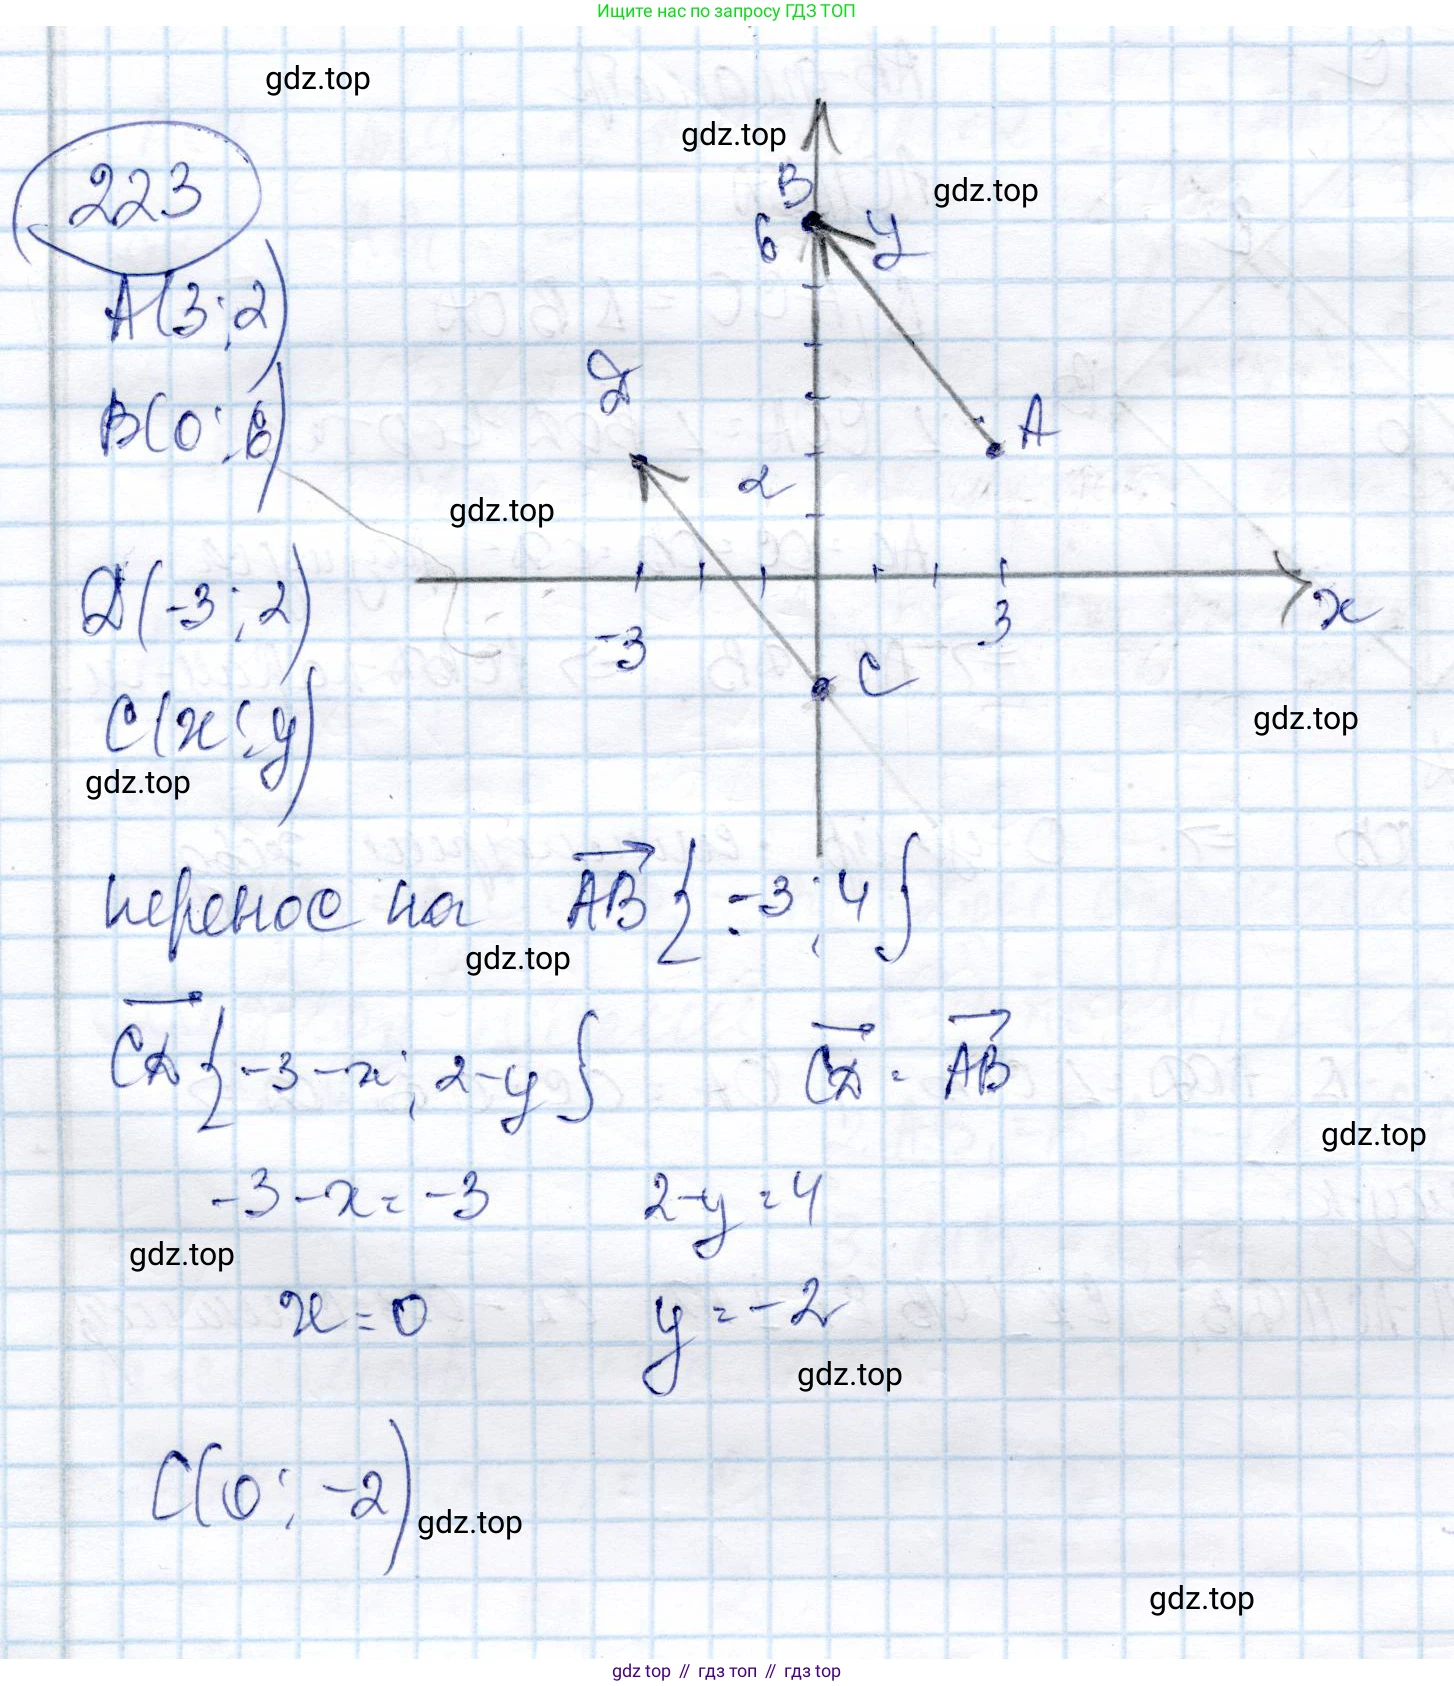 Ищите нас по запросу ГДЗ ТОП
gdz.top
gdz.top
gdz.top
223
A(3;2)
B(0;6)
D(-3;2)
C(x;y)
gdz.top
B
6
y
D
A
2
gdz.top
-3
3
x
C
gdz.top
перенос на AB{-3;4}
gdz.top
CD{-3-x;2-y} CD=AB
gdz.top
-3-x=-3 2-y=4
gdz.top
x=0 y=-2
gdz.top
C(0;-2)
gdz.top
gdz.top
gdz top // гдз топ // гдз top